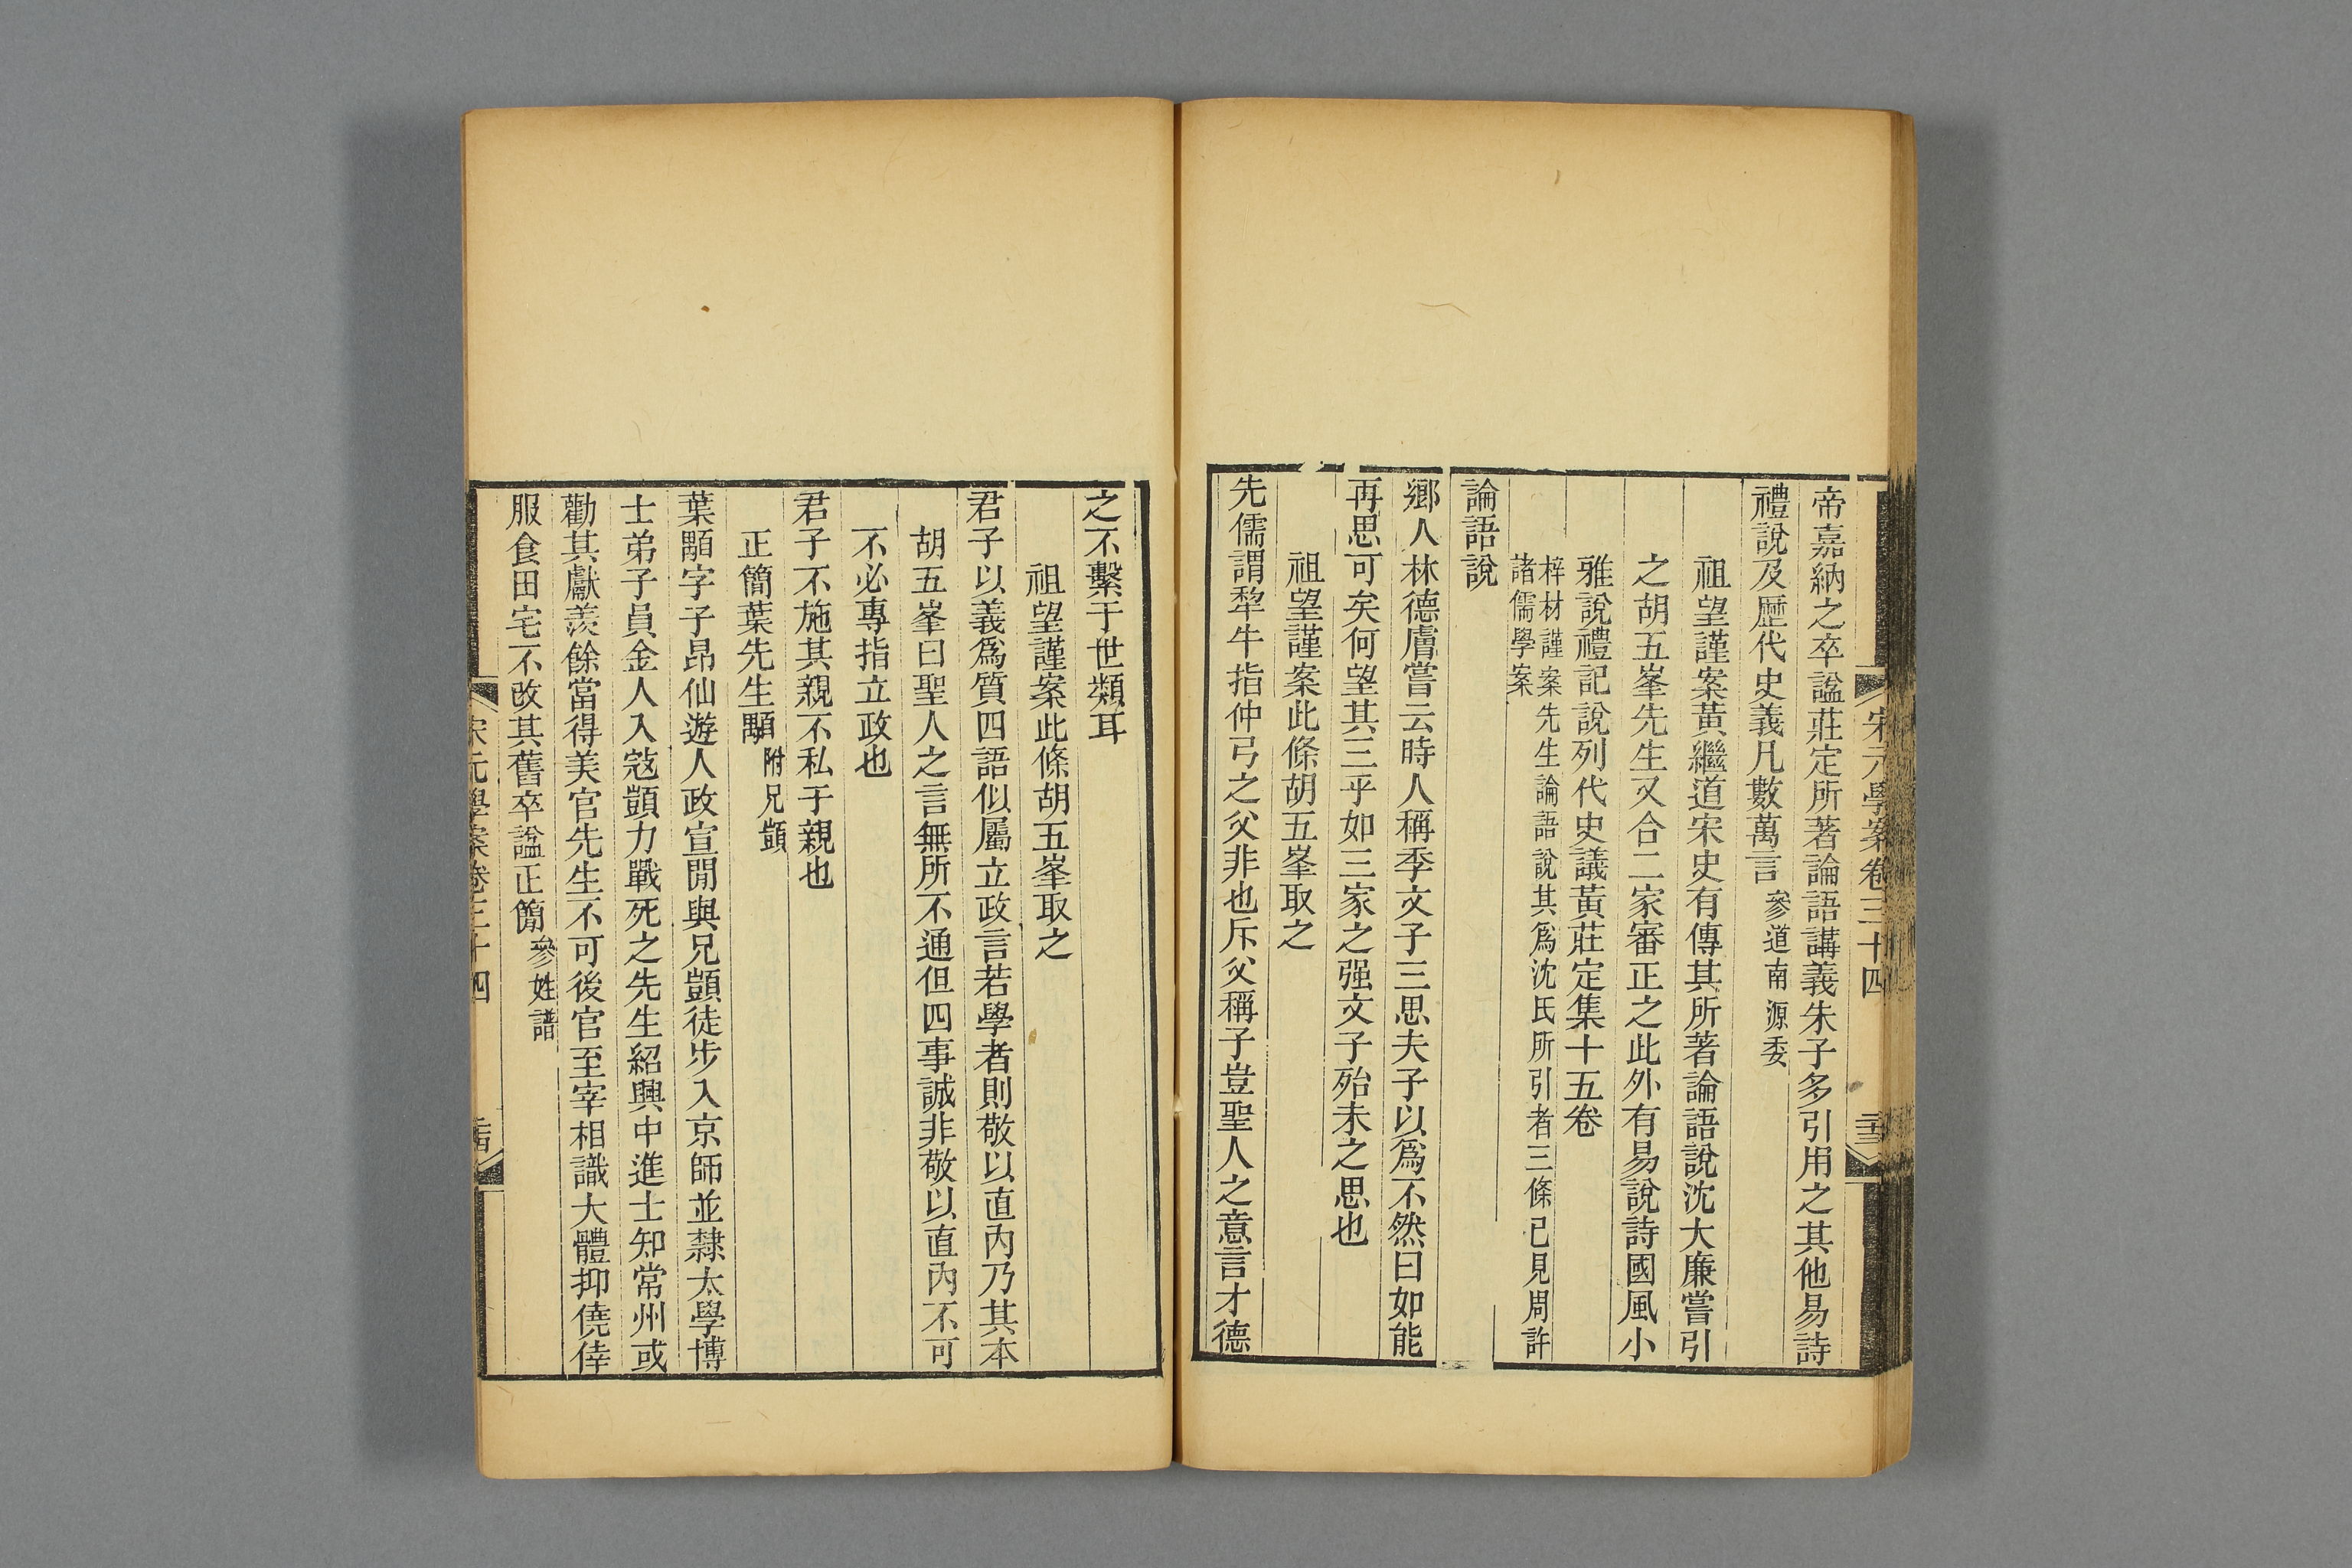 宋元學案卷三十四
帝嘉納之卒諡莊定所著論語講義朱子多引用之其他易詩
禮說及歷代史義凡數萬言參道南源委
祖望謹案黃繼道宋史有傳其所著論語說沈大廉嘗引
之胡五峯先生又合二家審正之此外有易說詩國風小
雅說禮記說列代史議黃莊定集十五卷
梓材謹案先生論語說其爲沈氏所引者三條已見周許
諸儒學案
論語說
鄉人林德膚嘗云時人稱季文子三思夫子以爲不然曰如能
再思可矣何望其三乎如三家之强文子殆未之思也
祖望謹案此條胡五峯取之
先儒謂犂牛指仲弓之父非也斥父稱子豈聖人之意言才德
之不繫于世類耳
祖望謹案此條胡五峯取之
君子以義爲質四語似屬立政言若學者則敬以直內乃其本
胡五峯曰聖人之言無所不通但四事誠非敬以直內不可
不必專指立政也
君子不施其親不私于親也
正簡葉先生顒附兄顗
葉顒字子昂仙遊人政宣閒與兄顗徒步入京師並隸太學博
士弟子員金人入寇顗力戰死之先生紹興中進士知常州或
勸其獻羨餘當得美官先生不可後官至宰相識大體抑僥倖
服食田宅不改其舊卒諡正簡參姓譜
宋元學案卷三十四